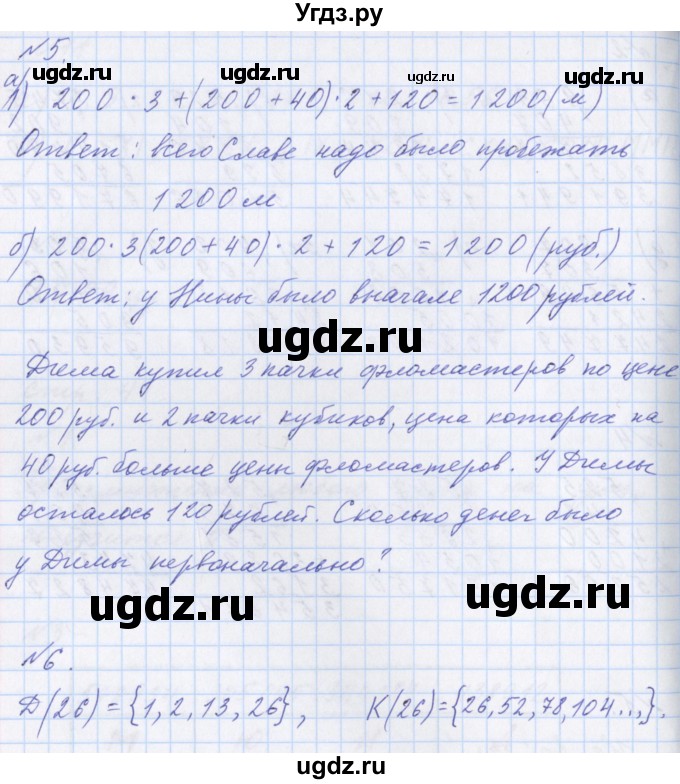 Угдз.ру
№5.
а)
ugdz.ru ugdz.ru ugdz.ru ugdz.ru
1) 200 · 3 + (200 + 40) · 2 + 120 = 1200 (м)
Ответ: всего Славе надо было пробежать
1200 м
б) 200 · 3(200 + 40) · 2 + 120 = 1200 (руб.)
Ответ: у Нины было вначале 1200 рублей.
ugdz.ru
Дима купил 3 пачки фломастеров по цене
200 руб. и 2 пачки кубиков, цена которых на
40 руб. больше цены фломастеров. У Димы
осталось 120 рублей. Сколько денег было
у Димы первоначально?
ugdz.ru ugdz.ru
№6.
Д(26) = {1, 2, 13, 26}, К(26) = {26, 52, 78, 104...,}.